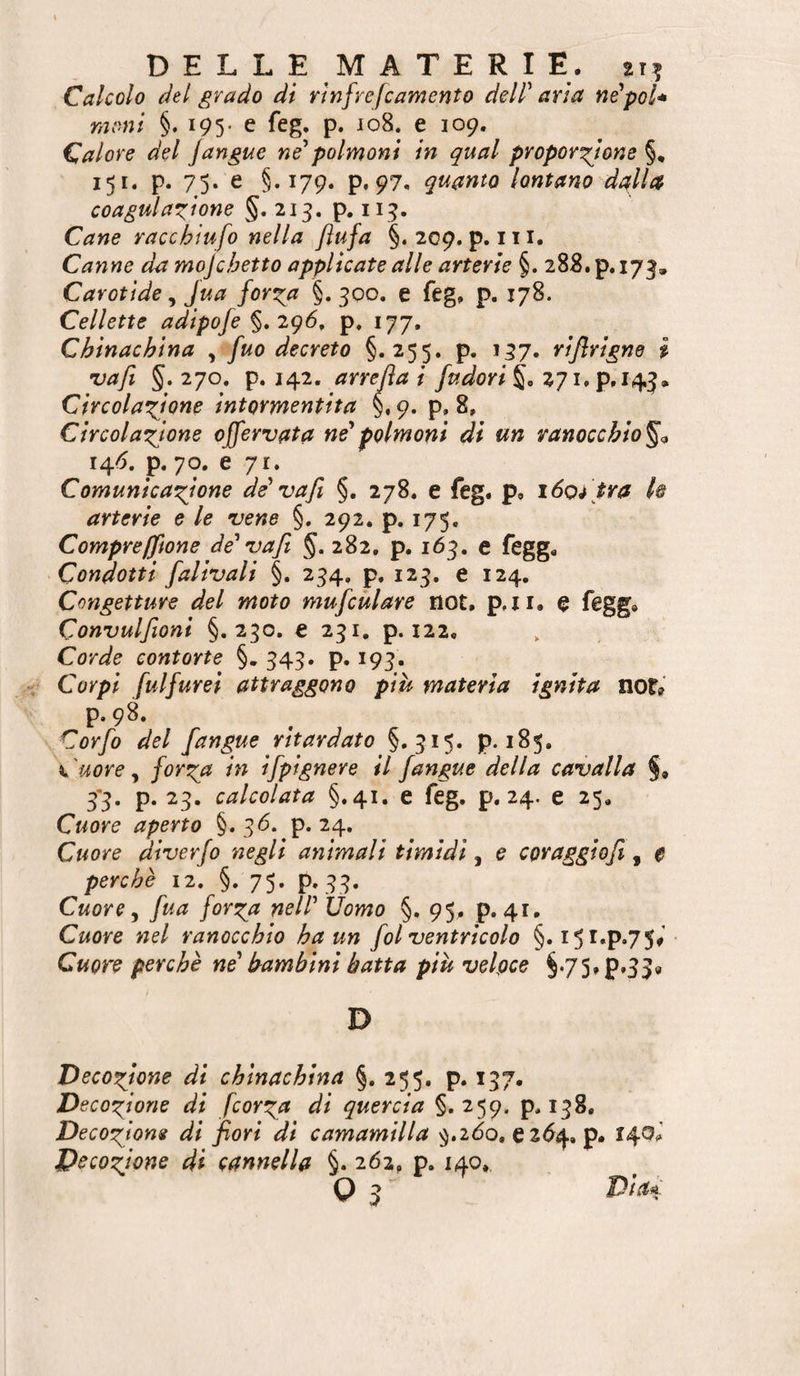 DELLE MATERIE. 213
Calcolo del grado di rinfreſcamento dell' aria ne'pol-
moni §. 195. e ſeg. p. 108. e 109.
Calore del ſangue ne' polmoni in qual proporzione §.
151. p. 75. e §. 179. p. 97. quanto lontano dalla
coagulazione §. 213. p. 113.
Cane racchiuſo nella ſtufa §. 209. p. 111.
Canne da moſchetto applicate alle arterie §. 288. p. 173.
Carotide, ſua forza §. 300. e ſeg. p. 178.
Cellette adipoſe §. 296. p. 177.
Chinachina, ſuo decreto §. 255. p. 137. riſtrigne i
vaſi §. 270. p. 142. arreſta i ſudori §. 271. p. 143.
Circolazione intormentita §. 9. p. 8.
Circolazione oſſervata ne' polmoni di un ranocchio §.
146. p. 70. e 71.
Comunicazione de' vaſi §. 278. e ſeg. p. 160. tra le
arterie e le vene §. 292. p. 175.
Compreſſione de' vaſi §. 282. p. 163. e ſegg.
Condotti ſalivali §. 234. p. 123. e 124.
Congetture del moto muſculare not. p. 11. e ſegg.
Convulſioni §. 230. e 231. p. 122.
Corde contorte §. 343. p. 193.
Corpi ſulfurei attraggono più materia ignita not.
p. 98.
Corſo del ſangue ritardato §. 315. p. 185.
Cuore, forza in iſpignere il ſangue della cavalla §.
33. p. 23. calcolata §. 41. e ſeg. p. 24. e 25.
Cuore aperto §. 36. p. 24.
Cuore diverſo negli animali timidi, e coraggioſi, e
perchè 12. §. 75. p. 33.
Cuore, ſua forza nell' Uomo §. 95. p. 41.
Cuore nel ranocchio ha un ſol ventricolo §. 151. p. 75.
Cuore perchè ne' bambini batta più veloce §. 75. p. 33.
D
Decozione di chinachina §. 255. p. 137.
Decozione di ſcorza di quercia §. 259. p. 138.
Decozione di fiori di camamilla §. 260. e 264. p. 140.
Decozione di cannella §. 262. p. 140.
O 3 Dia-